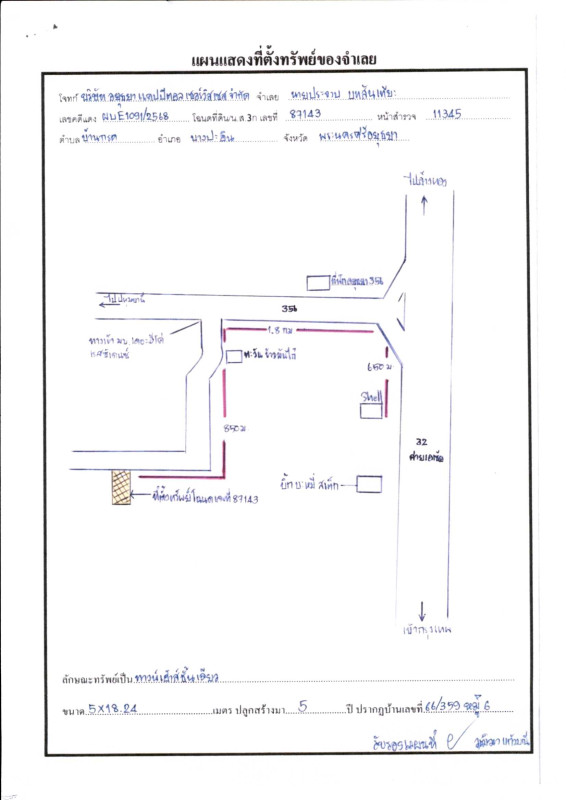 แผนแสดงที่ตั้งทรัพย์ของจำเลย
โจทก์ บริษัท อยุธยา แคปปิตอล เซอร์วิสเซส จำกัด จำเลย นายประจวบ
เลขคดีแดง ผบE1091/2568 โฉนดที่ดิน/น.ส.3ก เลขที่ 87143 หน้าสำรวจ 11345
ตำบล บ้านกรด อำเภอ บางปะอิน จังหวัด พระนครศรีอยุธยา
ไปอ่างทอง
ที่พักอยุธยา 356
ไปปทุมธานี
356
1.8 กม
ทางเข้า มบ.
ตะวัน ข้าวมันไก่
650 ม
Shell
850 ม
32
สายเอเชีย
บิ๊ก บะหมี่ สเต็ก
ที่ตั้งทรัพย์โฉนดเลขที่ 87143
เข้ากรุงเทพ
ลักษณะทรัพย์เป็น ทาวน์เฮ้าส์ชั้นเดียว
ขนาด 5x18.24 เมตร ปลูกสร้างมา 5 ปี ปรากฏบ้านเลขที่ 66/359 หมู่ 6
รับรองแผนที่